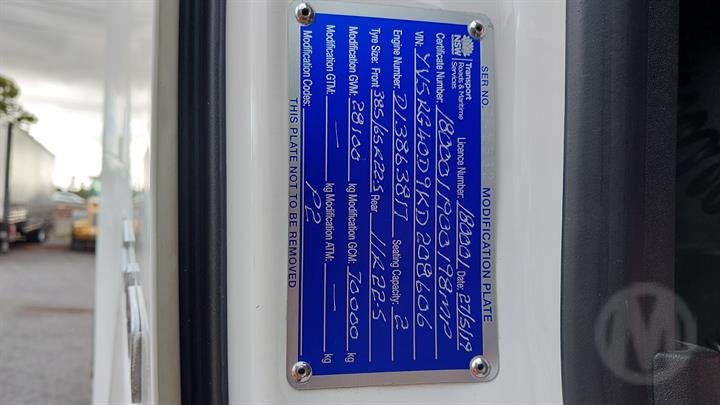 SER NO. MODIFICATION PLATE
Transport
NSW Roads & Maritime Services
Licence Number: 18000 Date: 27/5/19
Certificate Number: 180001900198MP
VIN: YV5RG40D9KD208606
Engine Number: D13863817 Seating Capacity: 2
Tyre Size: Front 385/65R22.5 Rear 11R22.5
Modification GVM: 28100 kg Modification GCM: 70000 kg
Modification GTM: — kg Modification ATM: — kg
Modification Codes: P2
THIS PLATE NOT TO BE REMOVED
M